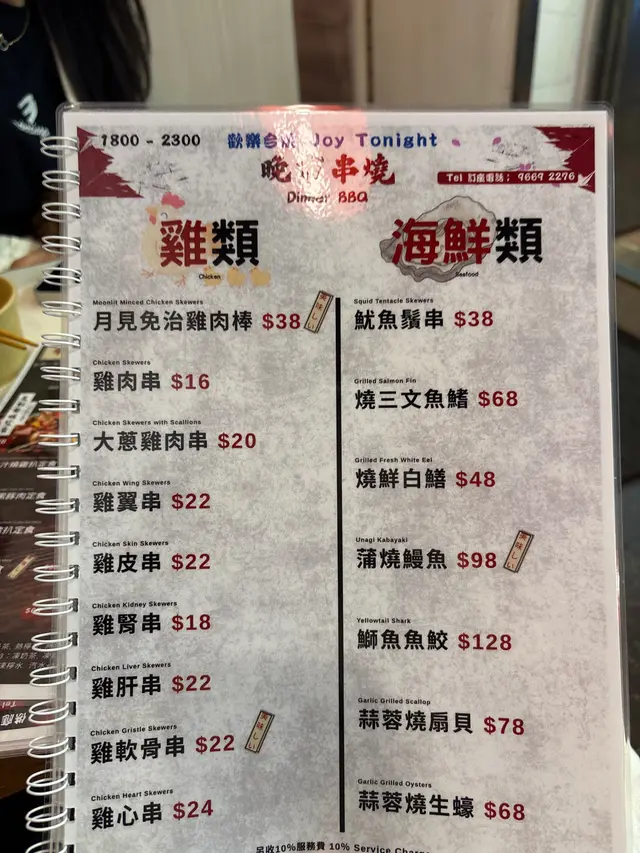 1800 - 2300
歡樂 Joy Tonight
晚 串燒
Dinner BBQ
Tel 訂座電話： 9669 2276
雞類
Chicken
Moonlit Minced Chicken Skewers
月見免治雞肉棒 $38
美味しい
Chicken Skewers
雞肉串 $16
Chicken Skewers with Scallions
大蔥雞肉串 $20
Chicken Wing Skewers
雞翼串 $22
Chicken Skin Skewers
雞皮串 $22
Chicken Kidney Skewers
雞腎串 $18
Chicken Liver Skewers
雞肝串 $22
Chicken Gristle Skewers
雞軟骨串 $22
美味しい
Chicken Heart Skewers
雞心串 $24
海鮮類
Seafood
Squid Tentacle Skewers
魷魚鬚串 $38
Grilled Salmon Fin
燒三文魚鰭 $68
Grilled Fresh White Eel
燒鮮白鱔 $48
Unagi Kabayaki
蒲燒鰻魚 $98
美味しい
Yellowtail Shark
鰤魚魚鮫 $128
Garlic Grilled Scallop
蒜蓉燒扇貝 $78
Garlic Grilled Oysters
蒜蓉燒生蠔 $68
另收10%服務費 10% Service Charge